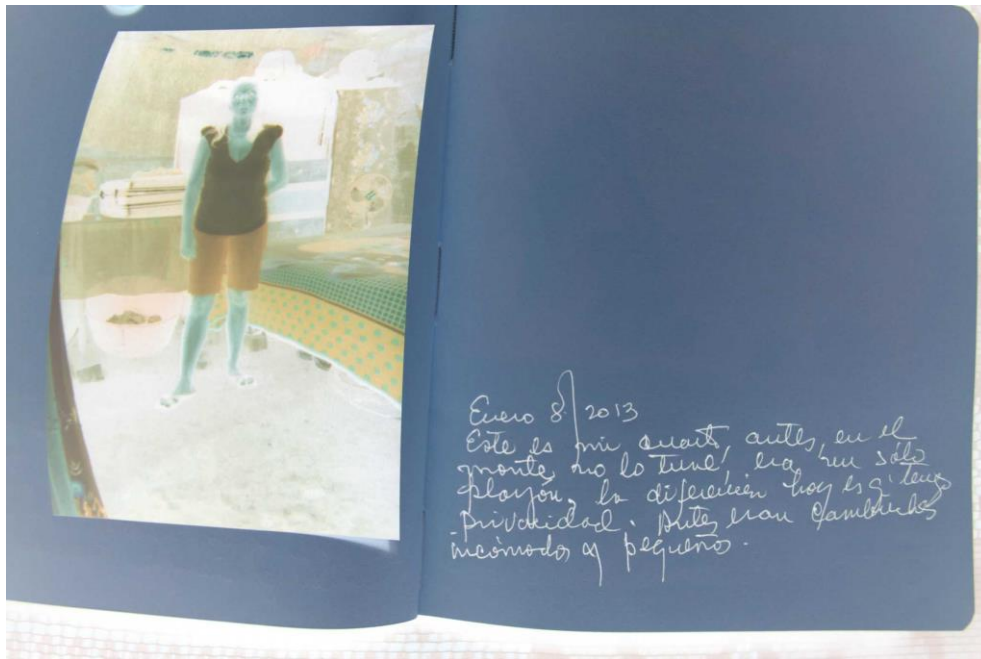 Enero 8/2013
Este es mi cuarto, antes, en el
monte, no lo tuve, era un sólo
playón, la diferencia hoy es q' tengo
privacidad. Antes eran
incómodos y pequeños.